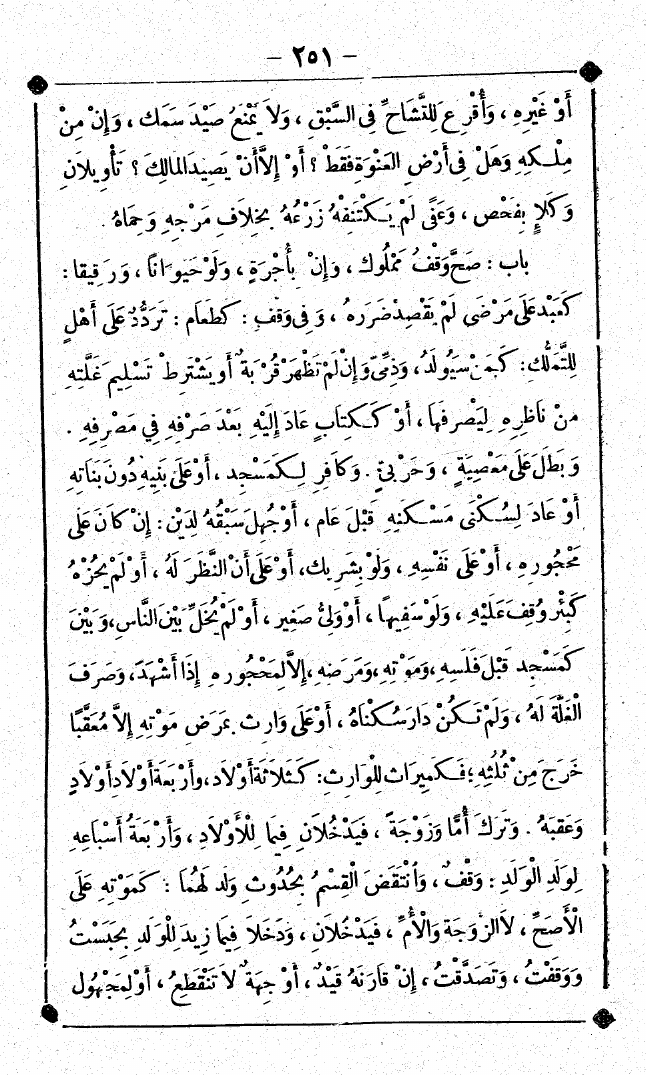 - ٢٥١ -
أَوْ غَيْرِهِ ، وَأُقْرِعَ لِلتَّشَاحِّ فِى السَّبْقِ ، وَلاَ يَمْنَعُ صَيْدَ سَمَك ، وَإِنْ مِنْ
مِلْكِهِ وَهَلْ فِى أَرْضِ العَنْوَةِ فَقَطْ ؟ أَوْ إِلاَّ أَنْ يَصِيدَ المَالِكَ ؟ تَأْوِيلانِ
وَكَلإٍ بِفَحْص ، وَعَفًى لَمْ يَكْتَنِفْهُ زَرْعُهُ بِخِلاَفِ مَرْجِهِ وَحِمَاهُ .
باب : صَحَّ وَقْفُ مَمْلُوك ، وَإِنْ بِأُجْرَةٍ ، وَلَوْ حَيَوَانًا ، وَرَقِيقا :
كَعَبْد عَلَى مَرْضَى لَمْ يَقْصِدْ ضَرَرَهُ ، وَفِى وَقْفِ : كَطَعَام : تَرَدُّدٌ عَلَى أَهْلٍ
لِلتَّمَلُّكِ : كَمَنْ سَيُولَدُ ، وَذِمِّىّ وَإِنْ لَمْ تَظْهَرْ قُرْبَةٌ أَو يَشْتَرِطْ تَسْلِيمَ غَلَّتِهِ
مَنْ نَاظِرِهِ لِيَصْرِفَهَا ، أَوْ كَكِتَابٍ عَادَ إِلَيْهِ بَعْدَ صَرْفِهِ فِي مَصْرِفِهِ .
وَبَطَلَ عَلَى مَعْصِيَةٍ ، وَحَرْبِىٍّ . وَكَافِرٍ لِكَمَسْجِد ، أَوْ عَلَى بَنِيهِ دُونَ بَنَاتِهِ
أَوْ عَادَ لِسُكْنَى مَسْكَنِهِ قَبْلَ عَام ، أَوْ جُهِلَ سَبْقُهُ لِدَيْن : إِنْ كَانَ عَلَى
مَحْجُورِهِ ، أَوْ عَلَى نَفْسِهِ ، وَلَوْ بِشَرِيك ، أَوْ عَلَى أَنَّ النَّظَرَ لَهُ ، أَوْ لَمْ يَحُزْهُ
كَبِيْرٌ وُقِفَ عَلَيْهِ ، وَلَوْ سَفِيهًا ، أَوْ وَلِىُّ صَغِير ، أَوْ لَمْ يُخَلِّ بَيْنَ النَّاسِ ، وَبَيْنَ
كَمَسْجِد قَبْلَ فَلَسِهِ ، وَمَوْتِهِ ، وَمَرَضِهِ ، إِلاَّ لِمَحْجُورِهِ إِذَا أَشْهَدَ ، وَصَرَفَ
الْغَلَّةَ لَهُ ، وَلَمْ تَكُنْ دَارَ سُكْنَاهُ ، أَوْ عَلَى وَارِث بِمَرَضِ مَوْتِهِ إِلاَّ مُعَقَّبًا
خَرَجَ مِنْ ثُلُثِهِ ؛ فَكَمِيرَاث لِلْوَارِثِ : كَثَلاَثَةِ أَوْلاَد ، وَأَرْبَعَةِ أَوْلاَدِ أَوْلاَدٍ
وَعَقِبَهُ . وَتَرَكَ أُمًّا وَزَوْجَةً ، فَيَدْخُلاَنِ فِيمَا لِلْأَوْلاَدِ ، وَأَرْبَعَةُ أَسْبَاعِهِ
لِوَلَدِ الْوَلَدِ : وَقْفٌ ، وَانْتَقَضَ الْقِسْمُ بِحُدُوثِ وَلَد لَهُمَا : كَمَوْتِهِ عَلَى
الْأَصَحِّ ، لاَ الزَّوْجَةِ وَالْأُمِّ ، فَيَدْخُلاَنِ ، وَدَخَلاَ فِيمَا زِيدَ لِلْوَلَدِ بِحَبَسْتُ
وَوَقَفْتُ ، وَتَصَدَّقْتُ ، إِنْ قَارَنَهُ قَيْدٌ ، أَوْ جِهَةٌ لاَ تَنْقَطِعُ ، أَوْ لِمَجْهُول